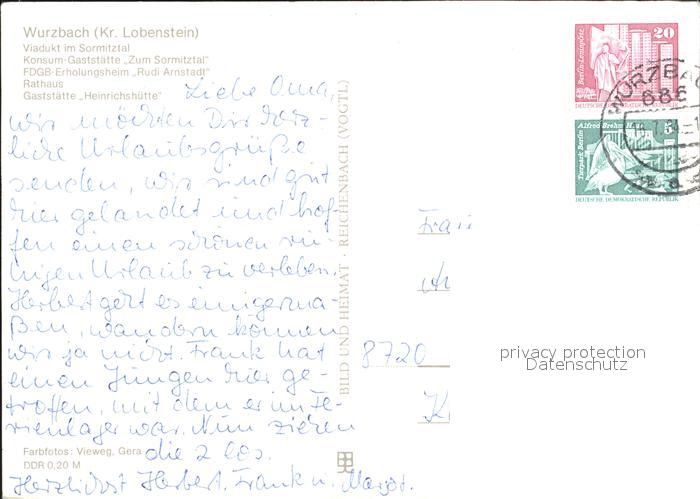 Wurzbach (Kr. Lobenstein)
Viadukt im Sormitztal
Konsum-Gaststätte „Zum Sormitztal"
FDGB-Erholungsheim „Rudi Arnstadt"
Rathaus
Gaststätte „Heinrichshütte"
Liebe Oma,
wir möchten Dir herz-
liche Urlaubsgrüße
senden, wir sind gut
hier gelandet und hof-
fen einen schönen ru-
higen Urlaub zu verleben.
Herbert geht es einigerma-
ßen, wandern können
wir ja nicht. Frank hat
einen Jungen hier ge-
troffen, mit dem er im Fe-
rienlager war. Nun ziehen
die 2 los.
Herzlichst Herbert, Frank u. Margot.
Farbfotos: Vieweg, Gera
DDR 0,20 M
BILD UND HEIMAT · REICHENBACH (VOGTL)
20
Berlin-Leninplatz
DEUTSCHE DEMOKRATISCHE REPUBLIK
Tierpark Berlin Alfred-Brehm-Haus
5
DEUTSCHE DEMOKRATISCHE REPUBLIK
WURZBACH
686
Frau
8720
privacy protection
Datenschutz